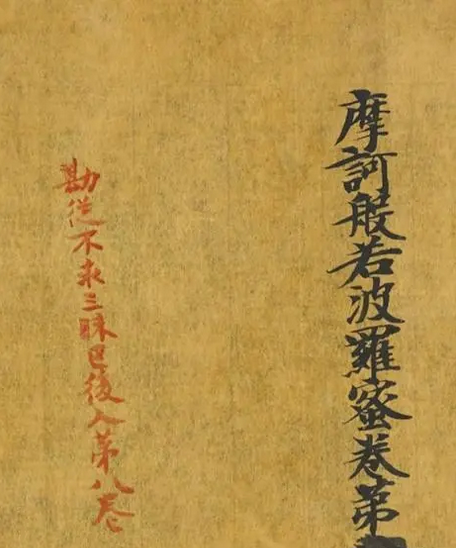 摩訶般若波羅蜜卷第
勘從不求三昧已後入第八卷